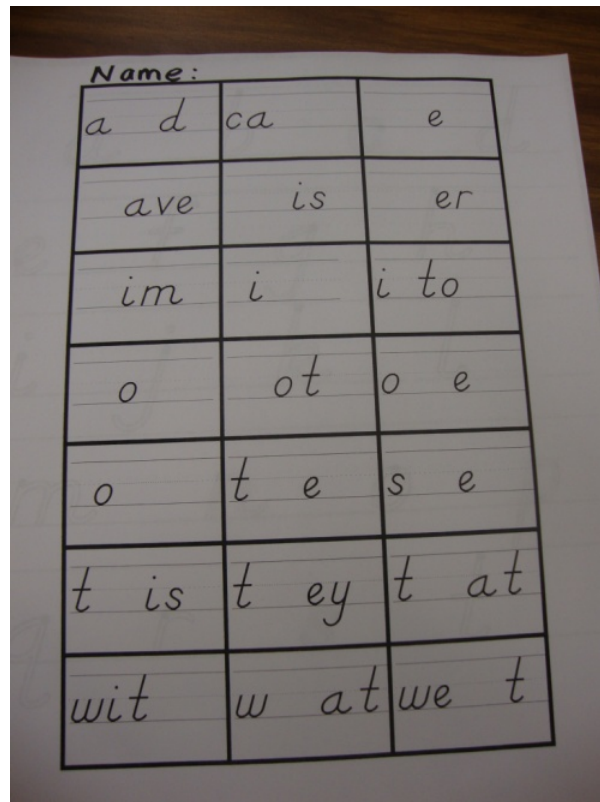 Name:
a d ca e
ave is er
im i i to
o ot o e
o t e s e
t is t ey t at
wit w at we t